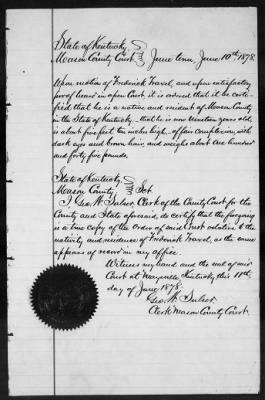 State of Kentucky,
Mason County Court June term June 10th 1878.
Upon motion of Frederick Travel, and upon satisfactory
proof heard in open Court, it is ordered that it be certi-
fied that he is a native and resident of Mason County
in the State of Kentucky. that he is now Nineteen years old
is about five feet ten inches high. of fair complexion, with
dark eyes and brown hair, and weighs about one hundred
and forty five pounds.
State of Kentucky,
Mason County, Sct
I Geo. W. Sulser, Clerk of the County Court for the
County and State aforesaid, do certify that the foregoing
is a true copy of the order of said Court relative to the
nativity and residence of Frederick Travel, as the same
appears of record in my office.
Witness my hand and the seal of said
Court at Maysville, Kentucky this 11th
day of June 1878.
Geo. W. Sulser
Clerk Mason County Court.